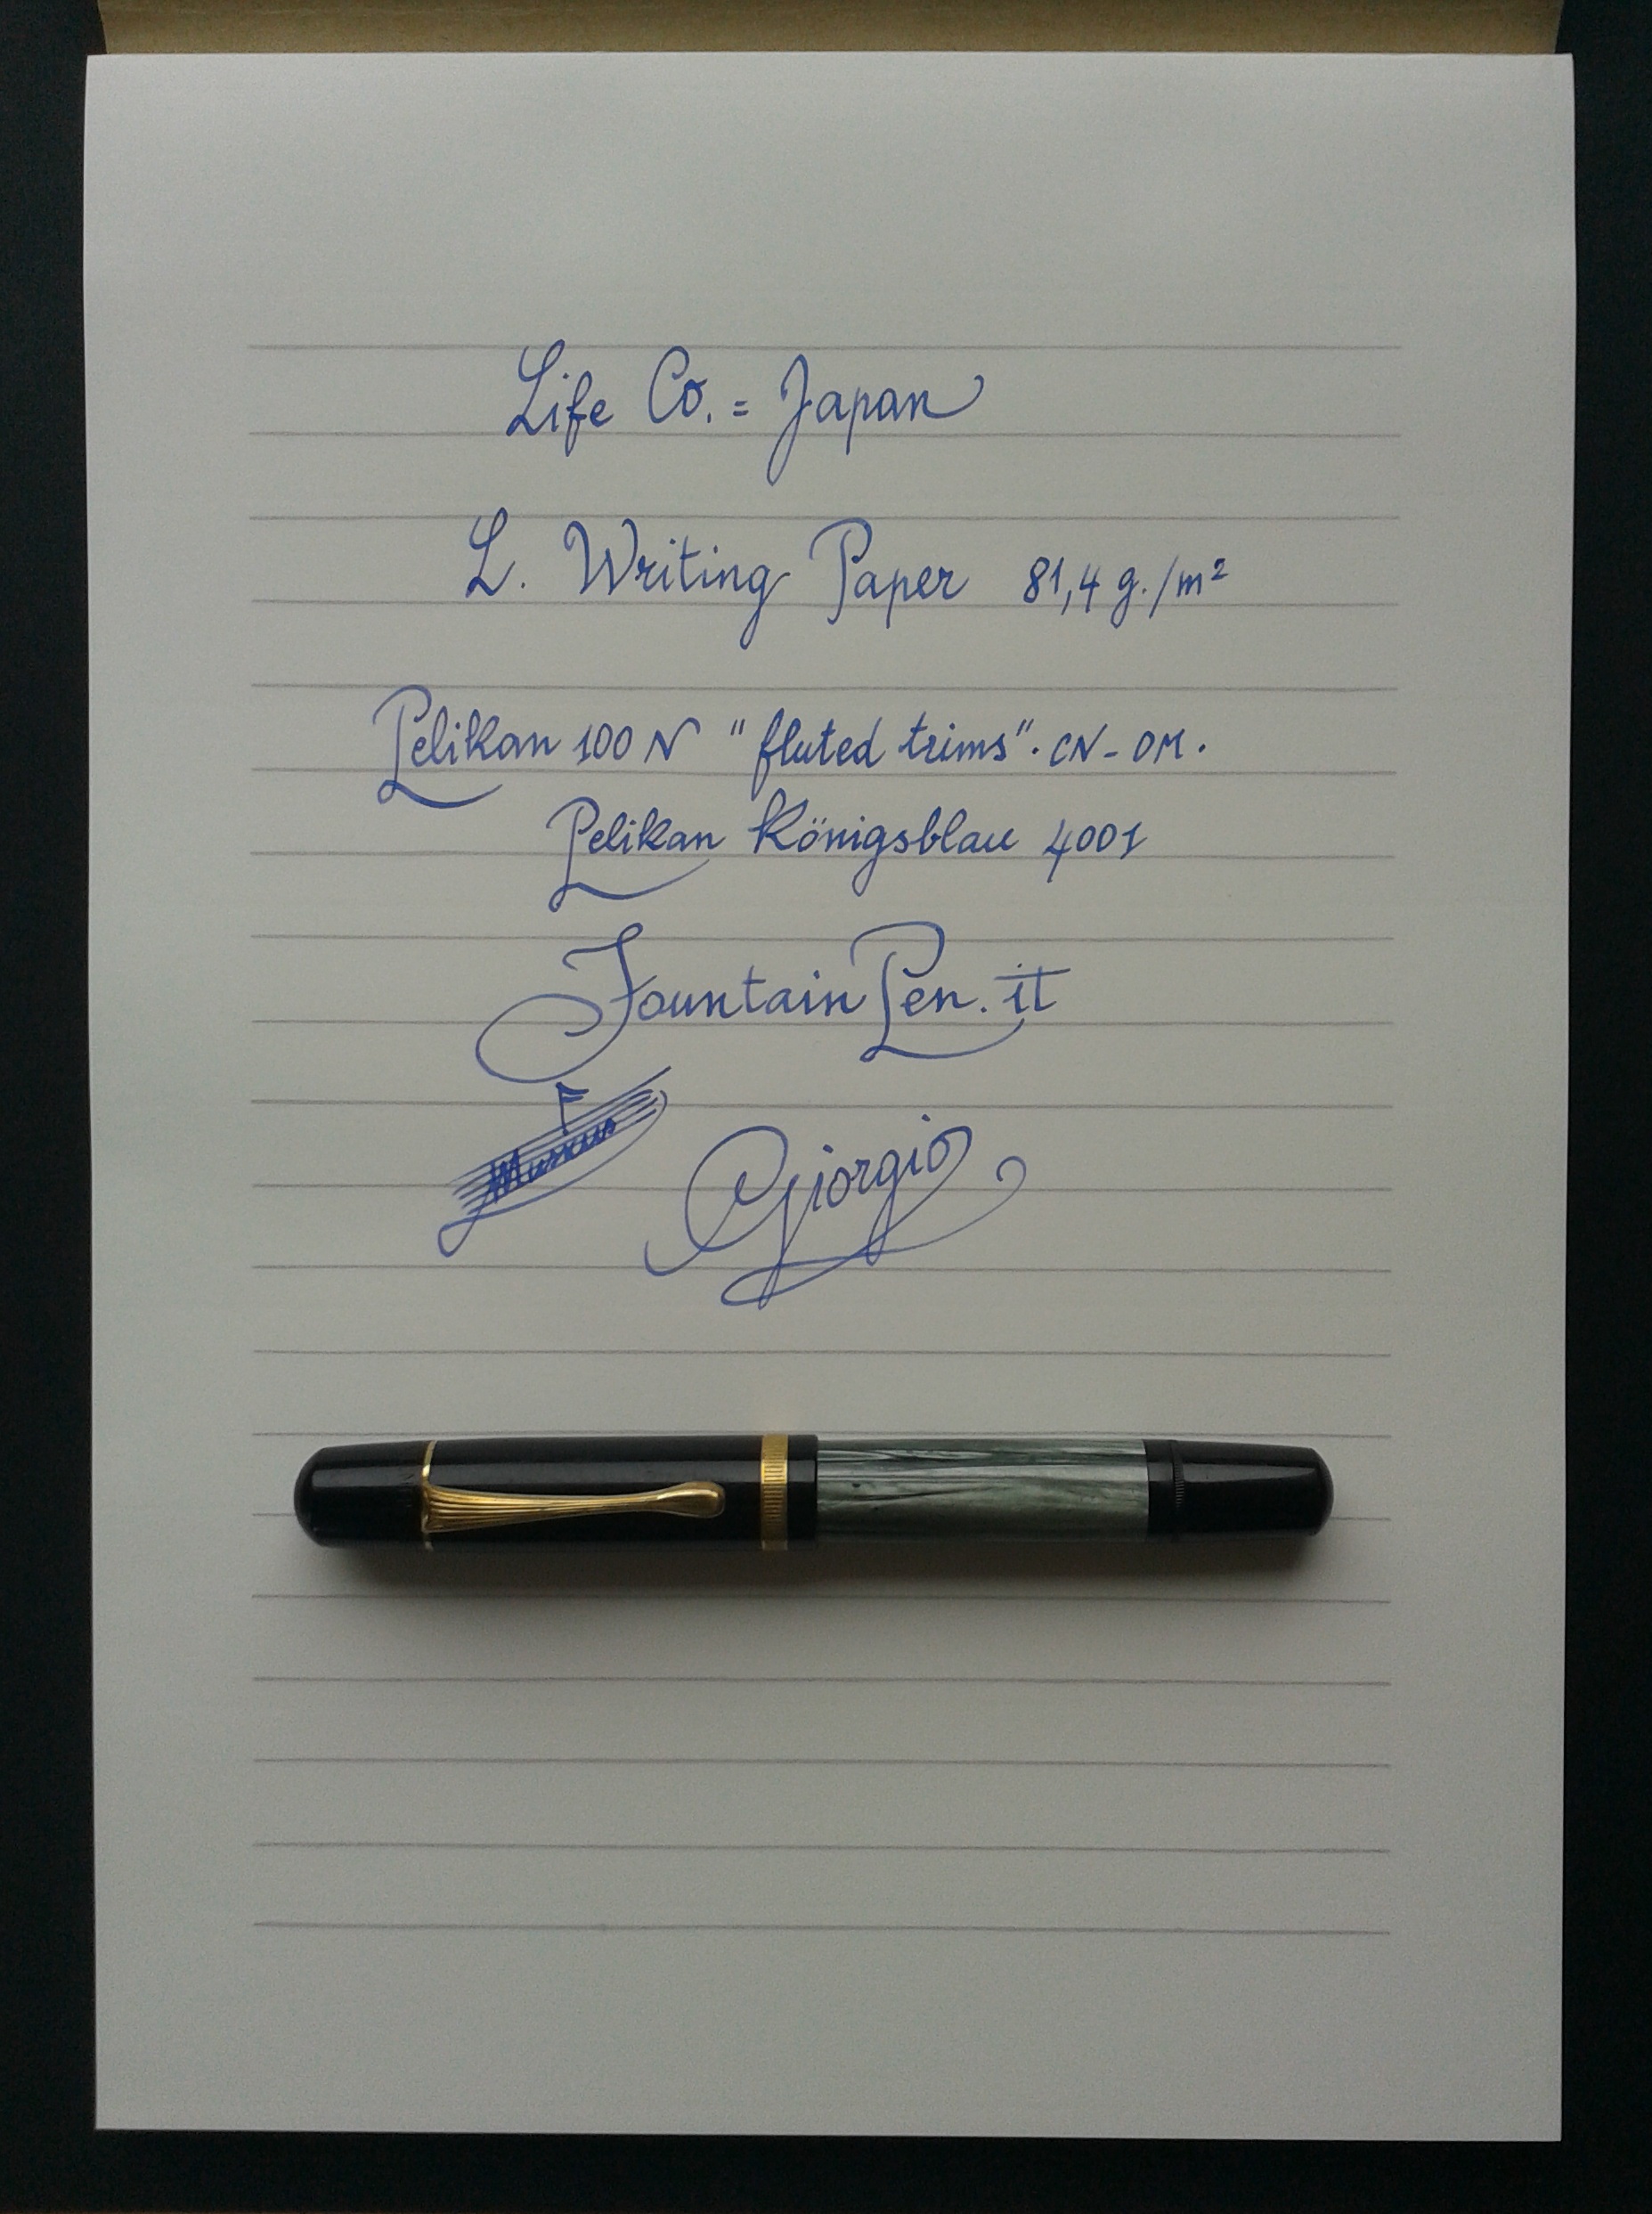 Life Co. = Japan
L. Writing Paper 81,4 g./m²
Pelikan 100 N "fluted trims". CN - OM.
Pelikan Königsblau 4001
FountainPen.it
Giorgio